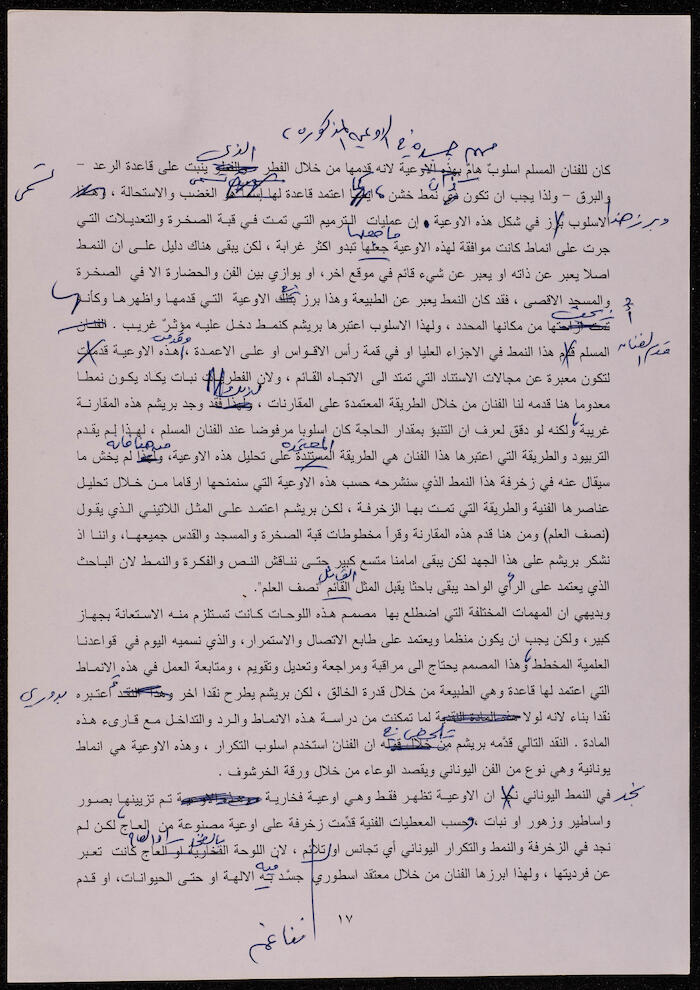 مهم جسده في الاوعية المذكورة،
الذي
كان للفنان المسلم اسلوبٌ هامٌ بهذه الاوعية لانه قدمها من خلال الفطر ينبت على قاعدة الرعد –
والبرق – ولذا يجب ان تكون نمط خشن اعتمد قاعدة لها الغضب والاستحالة ،
تسمى
ويبرز هذا
الاسلوب في شكل هذه الاوعية . إن عمليات الترميم التي تمت في قبة الصخرة والتعديلات التي
ما جعلها
جرت على انماط كانت موافقة لهذه الاوعية جعلها تبدو اكثر غرابة ، لكن يبقى هناك دليل على ان النمط
اصلا يعبر عن ذاته او يعبر عن شيء قائم في موقع اخر، او يوازي بين الفن والحضارة الا في الصخرة
والمسجد الاقصى ، فقد كان النمط يعبر عن الطبيعة وهذا برز الاوعية التي قدمها واظهرها وكأنها
من مكانها المحدد ، ولهذا الاسلوب اعتبرها بريشم كنمط دخل عليه مؤثرٌ غريب . الفنان
قدم الفنان
المسلم هذا النمط في الاجزاء العليا او في قمة رأس الاقواس او على الاعمدة ، هذه الاوعية قدمت
لتكون معبرة عن مجالات الاستناد التي تمتد الى الاتجاه القائم ، ولان الفطريات نبات يكاد يكون نمطا
معدوما هنا قدمه لنا الفنان من خلال الطريقة المعتمدة على المقارنات ، فقد وجد بريشم هذه المقارنة
غريبة ولكنه لو دقق لعرف ان التنبؤ بمقدار الحاجة كان اسلوبا مرفوضا عند الفنان المسلم ، لهذا لم يقدم
المعتمدة
من هنا فانه
التربيود والطريقة التي اعتبرها هذا الفنان هي الطريقة المستندة على تحليل هذه الاوعية، لم يخش ما
سيقال عنه في زخرفة هذا النمط الذي سنشرحه حسب هذه الاوعية التي سنمنحها ارقاما من خلال تحليل
عناصرها الفنية والطريقة التي تمت بها الزخرفة ، لكن بريشم اعتمد على المثل اللاتيني الذي يقول
(نصف العلم) ومن هنا قدم هذه المقارنة وقرأ مخطوطات قبة الصخرة والمسجد والقدس جميعها، واننا اذ
نشكر بريشم على هذا الجهد لكن يبقى امامنا متسع كبير حتى نناقش النص والفكرة والنمط لان الباحث
القائل
الذي يعتمد على الرأي الواحد يبقى باحثا يقبل المثل القائم "نصف العلم".
وبديهي ان المهمات المختلفة التي اضطلع بها مصمم هذه اللوحات كانت تستلزم منه الاستعانة بجهاز
كبير، ولكن يجب ان يكون منظما ويعتمد على طابع الاتصال والاستمرار، والذي نسميه اليوم في قواعدنا
العلمية المخطط وهذا المصمم يحتاج الى مراقبة ومراجعة وتعديل وتقويم ، ومتابعة العمل في هذه الانماط
بدوري
التي اعتمد لها قاعدة وهي الطبيعة من خلال قدرة الخالق ، لكن بريشم يطرح نقدا اخر وهذا النقد اعتبره
نقدا بناء لانه لولا هذه المادة النقدية لما تمكنت من دراسة هذه الانماط والرد والتداخل مع قارىء هذه
المادة . النقد التالي قدّمه بريشم من خلال قوله ان الفنان استخدم اسلوب التكرار ، وهذه الاوعية هي انماط
يونانية وهي نوع من الفن اليوناني ويقصد الوعاء من خلال ورقة الخرشوف .
نجد
في النمط اليوناني نجد ان الاوعية تظهر فقط وهي اوعية فخارية تم تزيينها بصور
واساطير وزهور او نبات ، وحسب المعطيات الفنية قدّمت زخرفة على اوعية مصنوعة من العاج لكن لم
نجد في الزخرفة والنمط والتكرار اليوناني أي تجانس او تلائم ، لان اللوحة الفخارية او العاج كانت تعبر
فيه
عن فرديتها ، ولهذا ابرزها الفنان من خلال معتقد اسطوري جسّد به الالهة او حتى الحيوانات، او قدم
١٧
تناغم